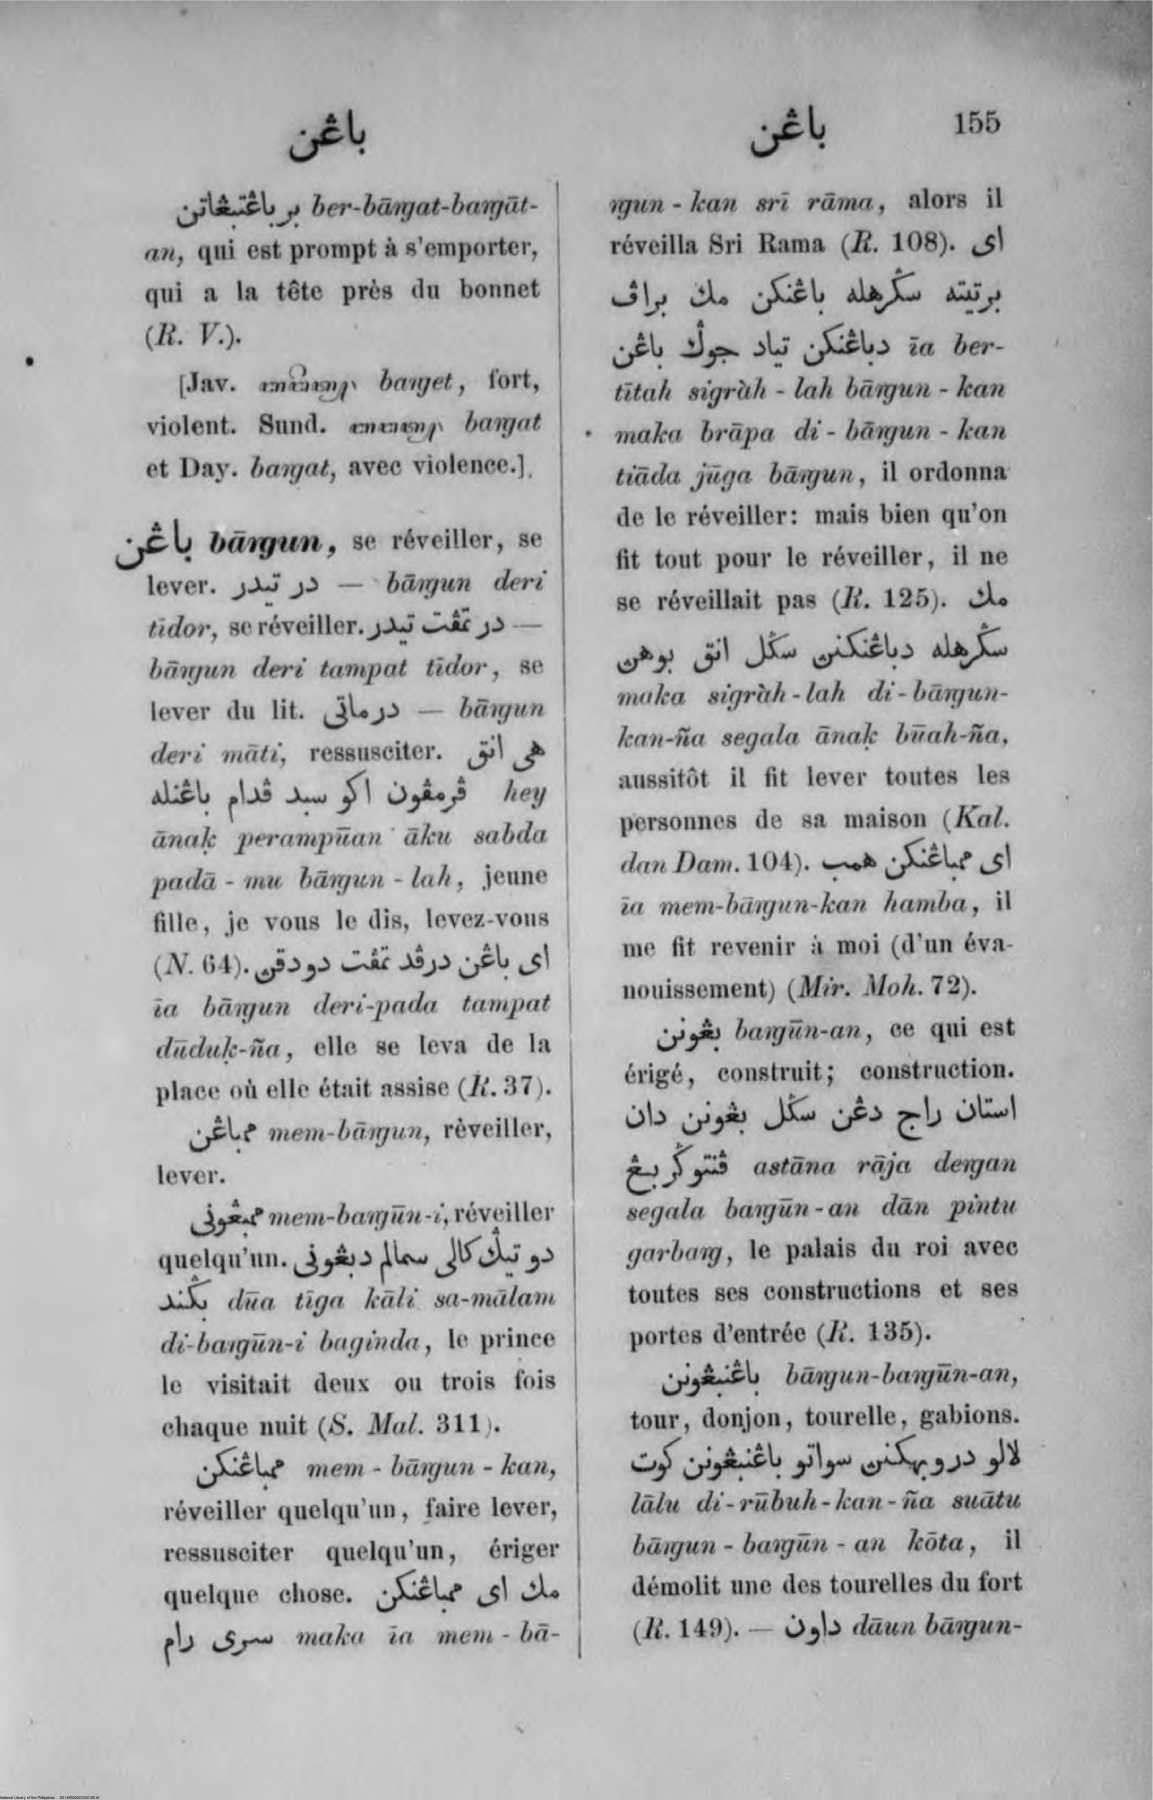 باڠن
باڠن 155
بر باڠتبڠاتن ber-bāŋgat-baŋgāt-
an, qui est prompt à s'emporter,
qui a la tête près du bonnet
(R. V.).
[Jav. baŋget, fort,
violent. Sund. baŋgat
et Day. baŋgat, avec violence.].
باڠن bāŋgun, se réveiller, se
lever. در تيدر — bāŋgun deri
tīdor, se réveiller. در تمڤت تيدر —
bāŋgun deri tampat tīdor, se
lever du lit. درماتي — bāŋgun
deri māti, ressusciter. هي انق
ڤرمڤون اكو سبد ڤدام باڠنله hey
ānaḳ perampūan āku sabda
padā - mu bāŋgun - lah, jeune
fille, je vous le dis, levez-vous
(N. 64). اي باڠن درڤد تمڤت دودقن
īa bāŋgun deri-pada tampat
dūduḳ-ña, elle se leva de la
place où elle était assise (R. 37).
ممباڠن mem-bāŋgun, rèveiller,
lever.
ممبڠوني mem-baŋgūn-i, réveiller
quelqu'un. دو تيݢ كالي سمالم دبڠوني
بݢند dūa tīga kāli sa-mālam
di-baŋgūn-i baginda, le prince
le visitait deux ou trois fois
chaque nuit (S. Mal. 311).
ممباڠنكن mem - bāŋgun - kan,
réveiller quelqu'un, faire lever,
ressusciter quelqu'un, ériger
quelque chose. مك اي ممباڠنكن
سري رام maka īa mem - bā-
ŋgun - kan srī rāma, alors il
réveilla Sri Rama (R. 108). اي
برتيته سݢرهله باڠنكن مك براڤ
دباڠنكن تياد جوݢ باڠن īa ber-
tītah sigràh - lah bāŋgun - kan
maka brāpa di - bāŋgun - kan
tiāda jūga bāŋgun, il ordonna
de le réveiller: mais bien qu'on
fit tout pour le réveiller, il ne
se réveillait pas (R. 125). مك
سݢرهله دباڠنكنن سݢل انق بوهن
maka sigràh - lah di - bāŋgun-
kan-ña segala ānaḳ būah-ña,
aussitôt il fit lever toutes les
personnes de sa maison (Kal.
dan Dam. 104). اي ممباڠنكن همب
īa mem-bāŋgun-kan hamba, il
me fit revenir à moi (d'un éva-
nouissement) (Mir. Moh. 72).
بڠونن baŋgūn-an, ce qui est
érigé, construit; construction.
استان راج دڠن سݢل بڠونن دان
ڤنتو ݢربڠ astāna rāja deŋgan
segala baŋgūn - an dān pintu
garbaŋg, le palais du roi avec
toutes ses constructions et ses
portes d'entrée (R. 135).
باڠنبڠونن bāŋgun-baŋgūn-an,
tour, donjon, tourelle, gabions.
لالو دروبهكنن سواتو باڠنبڠونن كوت
lālu di - rūbuh - kan - ña suātu
bāŋgun - baŋgūn - an kōta, il
démolit une des tourelles du fort
(R. 149). — داون dāun bāŋgun-